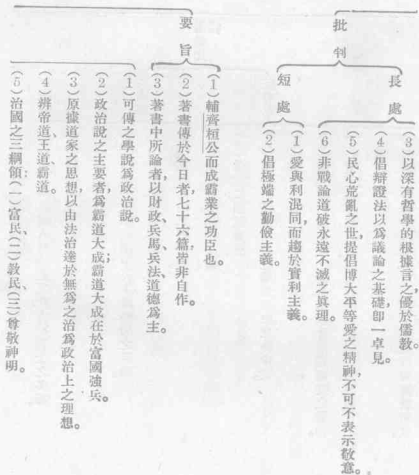 批判
長處
(3)以深有哲學的根據言之優於儒教。
(4)倡辯證法以爲議論之基礎、卽一卓見。
(5)民心荒亂之世、提倡博大平等愛之精神、不可不表示敬意。
(6)非戰論道破永遠不滅之眞理。
短處
(1)愛與利混同、而趨於實利主義。
(2)倡極端之勤儉主義。
要旨
(1)輔齊桓公而成霸業之功臣也。
(2)著書傳於今日者、七十六篇、皆非自作。
(3)著書中所論者、以財政、兵馬、兵法、道德爲主。
(1)可傳之學說爲政治說。
(2)政治說之主要者、爲霸道大成;霸道大成在於富國強兵。
(3)原據道家之思想、以由法治達於無爲之治爲政治上之理想。
(4)辨帝道王道霸道。
(5)治國之三綱領:(一)富民、(二)教民、(三)尊敬神明。